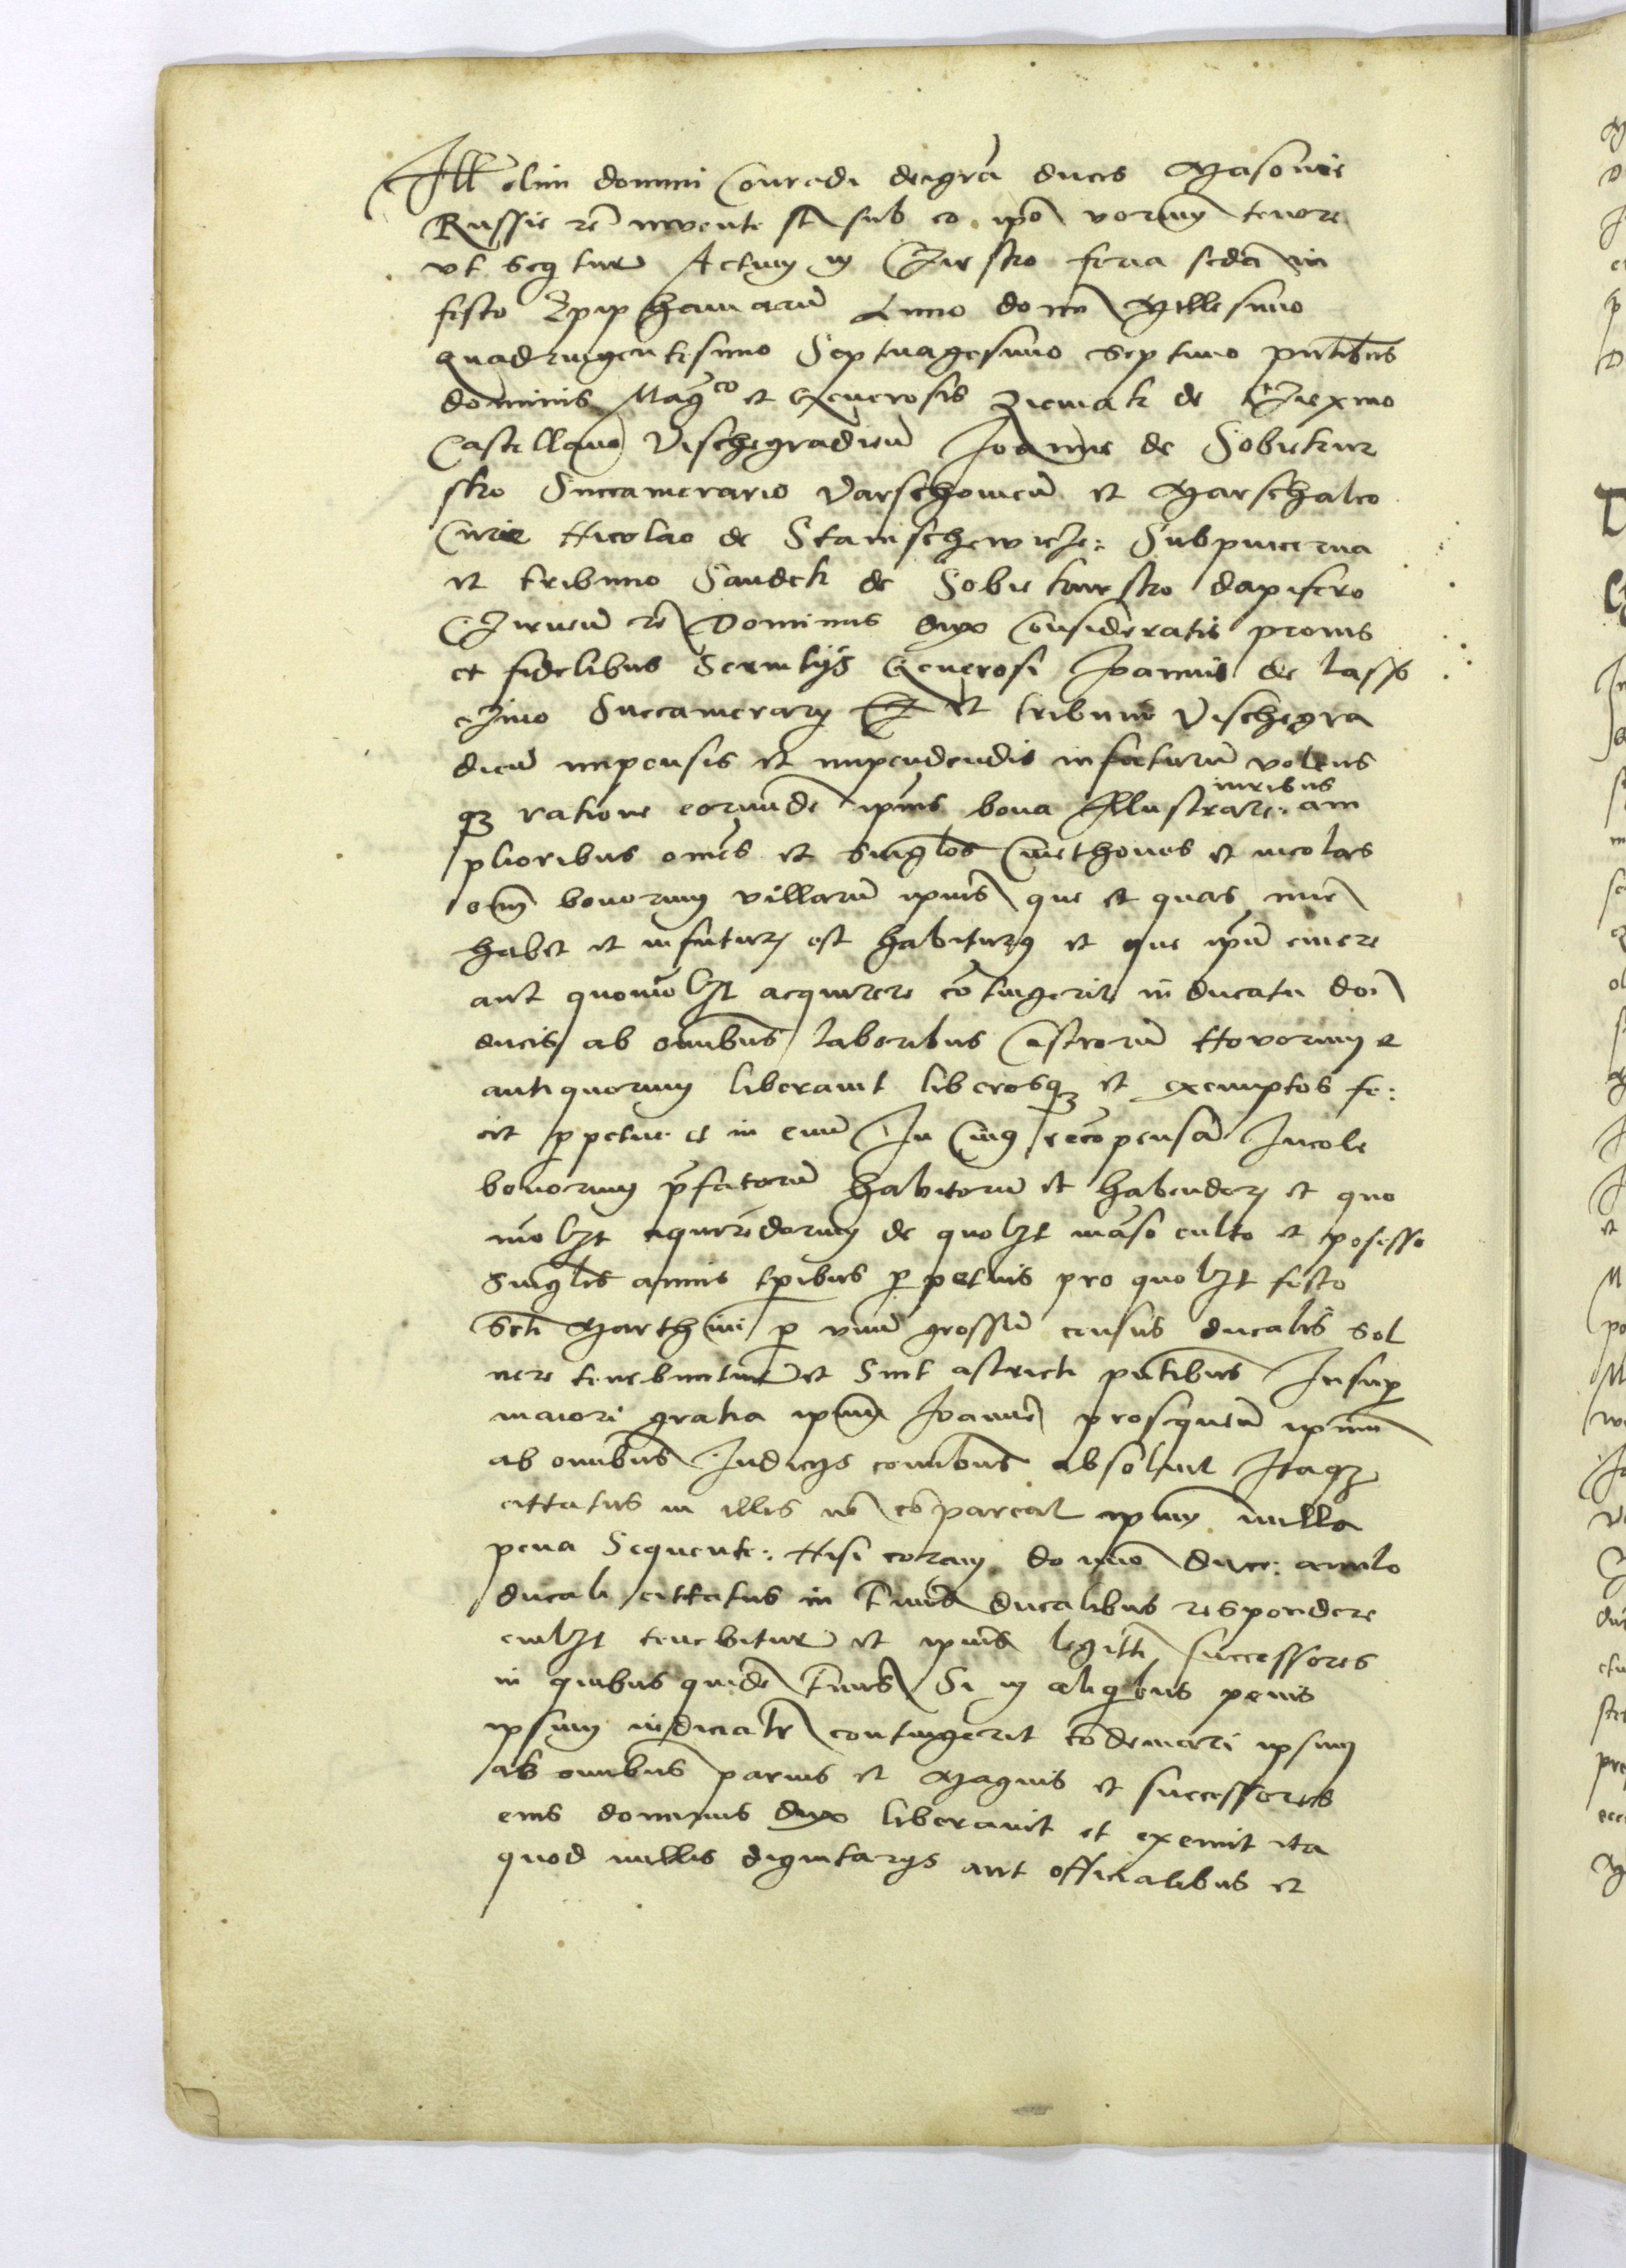 Ill olim domini Conradi dei gra ducis Masovie
Russie re invente st sub eo ipo verborum tenore
vt Seqtur Actum in Cirsko feria scda in
festo Epiphaniarum Anno domi Millesimo
quadringentesimo Septuagesimo Septimo pntibus
dominis Magco et Generosis Ziemak de
Castellano Vischegradien Joanne de Sobiekur
sko Succamerario Varschovien et Marschalco
Curie Nicolao de Stanischewicze: Subpincerna
et tribuno Sandek de Sobiekursko dapifero
Cirnen re Dominus dux Consideratis pronis
et fidelibus Servitijs Generosi Joannis de lasso
czino Succamerarij et tribuni Vischegra
dien impensis et impendendis in futurum volens
qz ratione eorumde ipius bona Illustrare iuribus am
plioribus omes et Singlos Cmethones et incolas
omi bonorum villarum ipius que et quas nuc
habet et in futur est habiturus et que ipum emere
aut quomolzt acquirere cotingerit in ducatu doi
ducis ab omibus laboribus Castrorum Novorum et
antiquorum liberavit liberosqz et exemptos fe:
cit ppetue et in evu In Cuius recopensam Incole
bonorum pfatorum habitorum et habendor et quo
molzt aquirendorum de quolzt manso culto et possesso
Singlis annis tpibus ppetuis pro quolzt festo
Scti Marthini p unum grossum census ducalis Sol
vere tenebuntur et Sint astricti pntibus Insup
maiori gratia ipum Joannem prosequen ipum
ab omibus Iudicijs comibus absoluit Itaqz
cittatus in illis no copareat ipum nulla
pena Sequente: Nisi coram domino duce: anulo
ducali cittatus in Tmis ducalibus respondere
cuilzt tenebitur et ipius legitti successores
in quibus quide Tmis Si in aliqibus penis
ipsum iudicialr contingerit codemnari ipsum
ab omibus parvis et Magnis et successores
eius dominus dux liberavit et exemit ita
quod nullis dignitarijs aut officialibus et